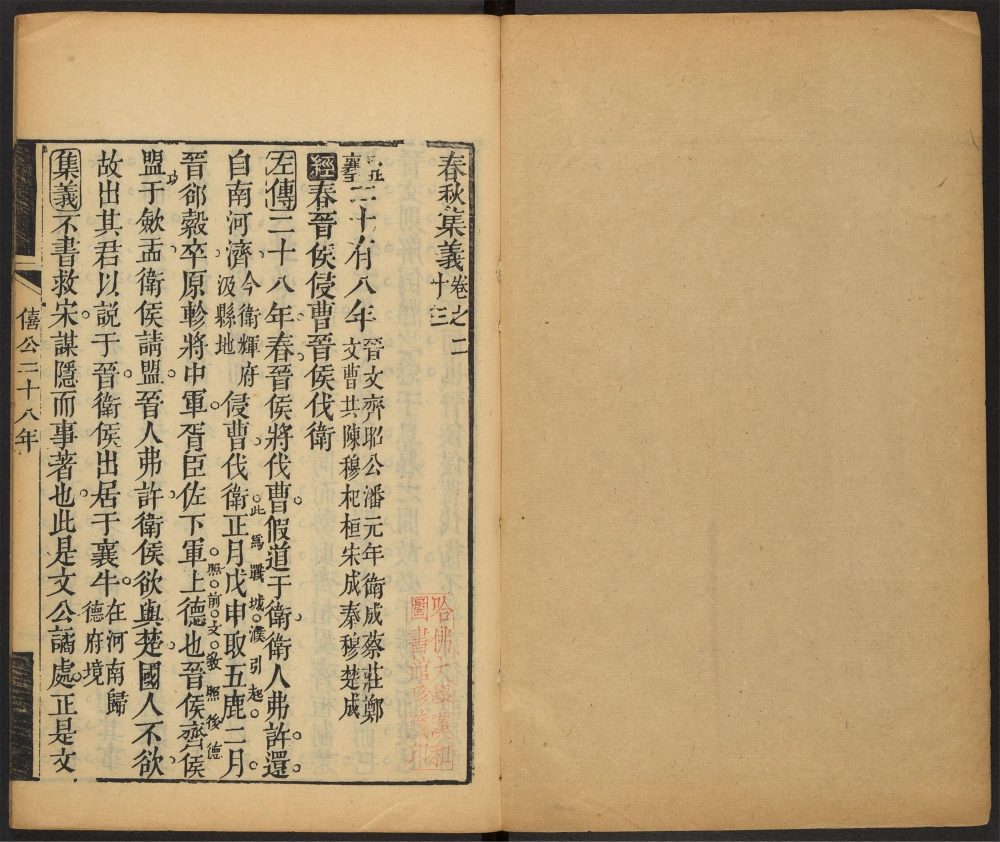 春秋集義卷之二十三
二十有八年晉文齊昭公潘元年衛成蔡莊鄭文曹共陳穆杞桓宋成秦穆楚成
經春晉侯侵曹晉侯伐衛
左傳二十八年春晉侯將伐曹假道于衛衛人弗許還
自南河濟今衛輝府汲縣地侵曹伐衛正月戊申取五鹿二月
此為戰城濮引起
晉郤縠卒原軫將中軍胥臣佐下軍上德也晉侯齊侯
照前文教照後德
盟于歛盂衛侯請盟晉人弗許衛侯欲與楚國人不欲
故出其君以說于晉衛侯出居于襄牛在河南歸德府境
集義不書救宋謀隱而事著也此是文公譎處正是文
僖公二十八年
哈佛大學漢和圖書館珍藏印